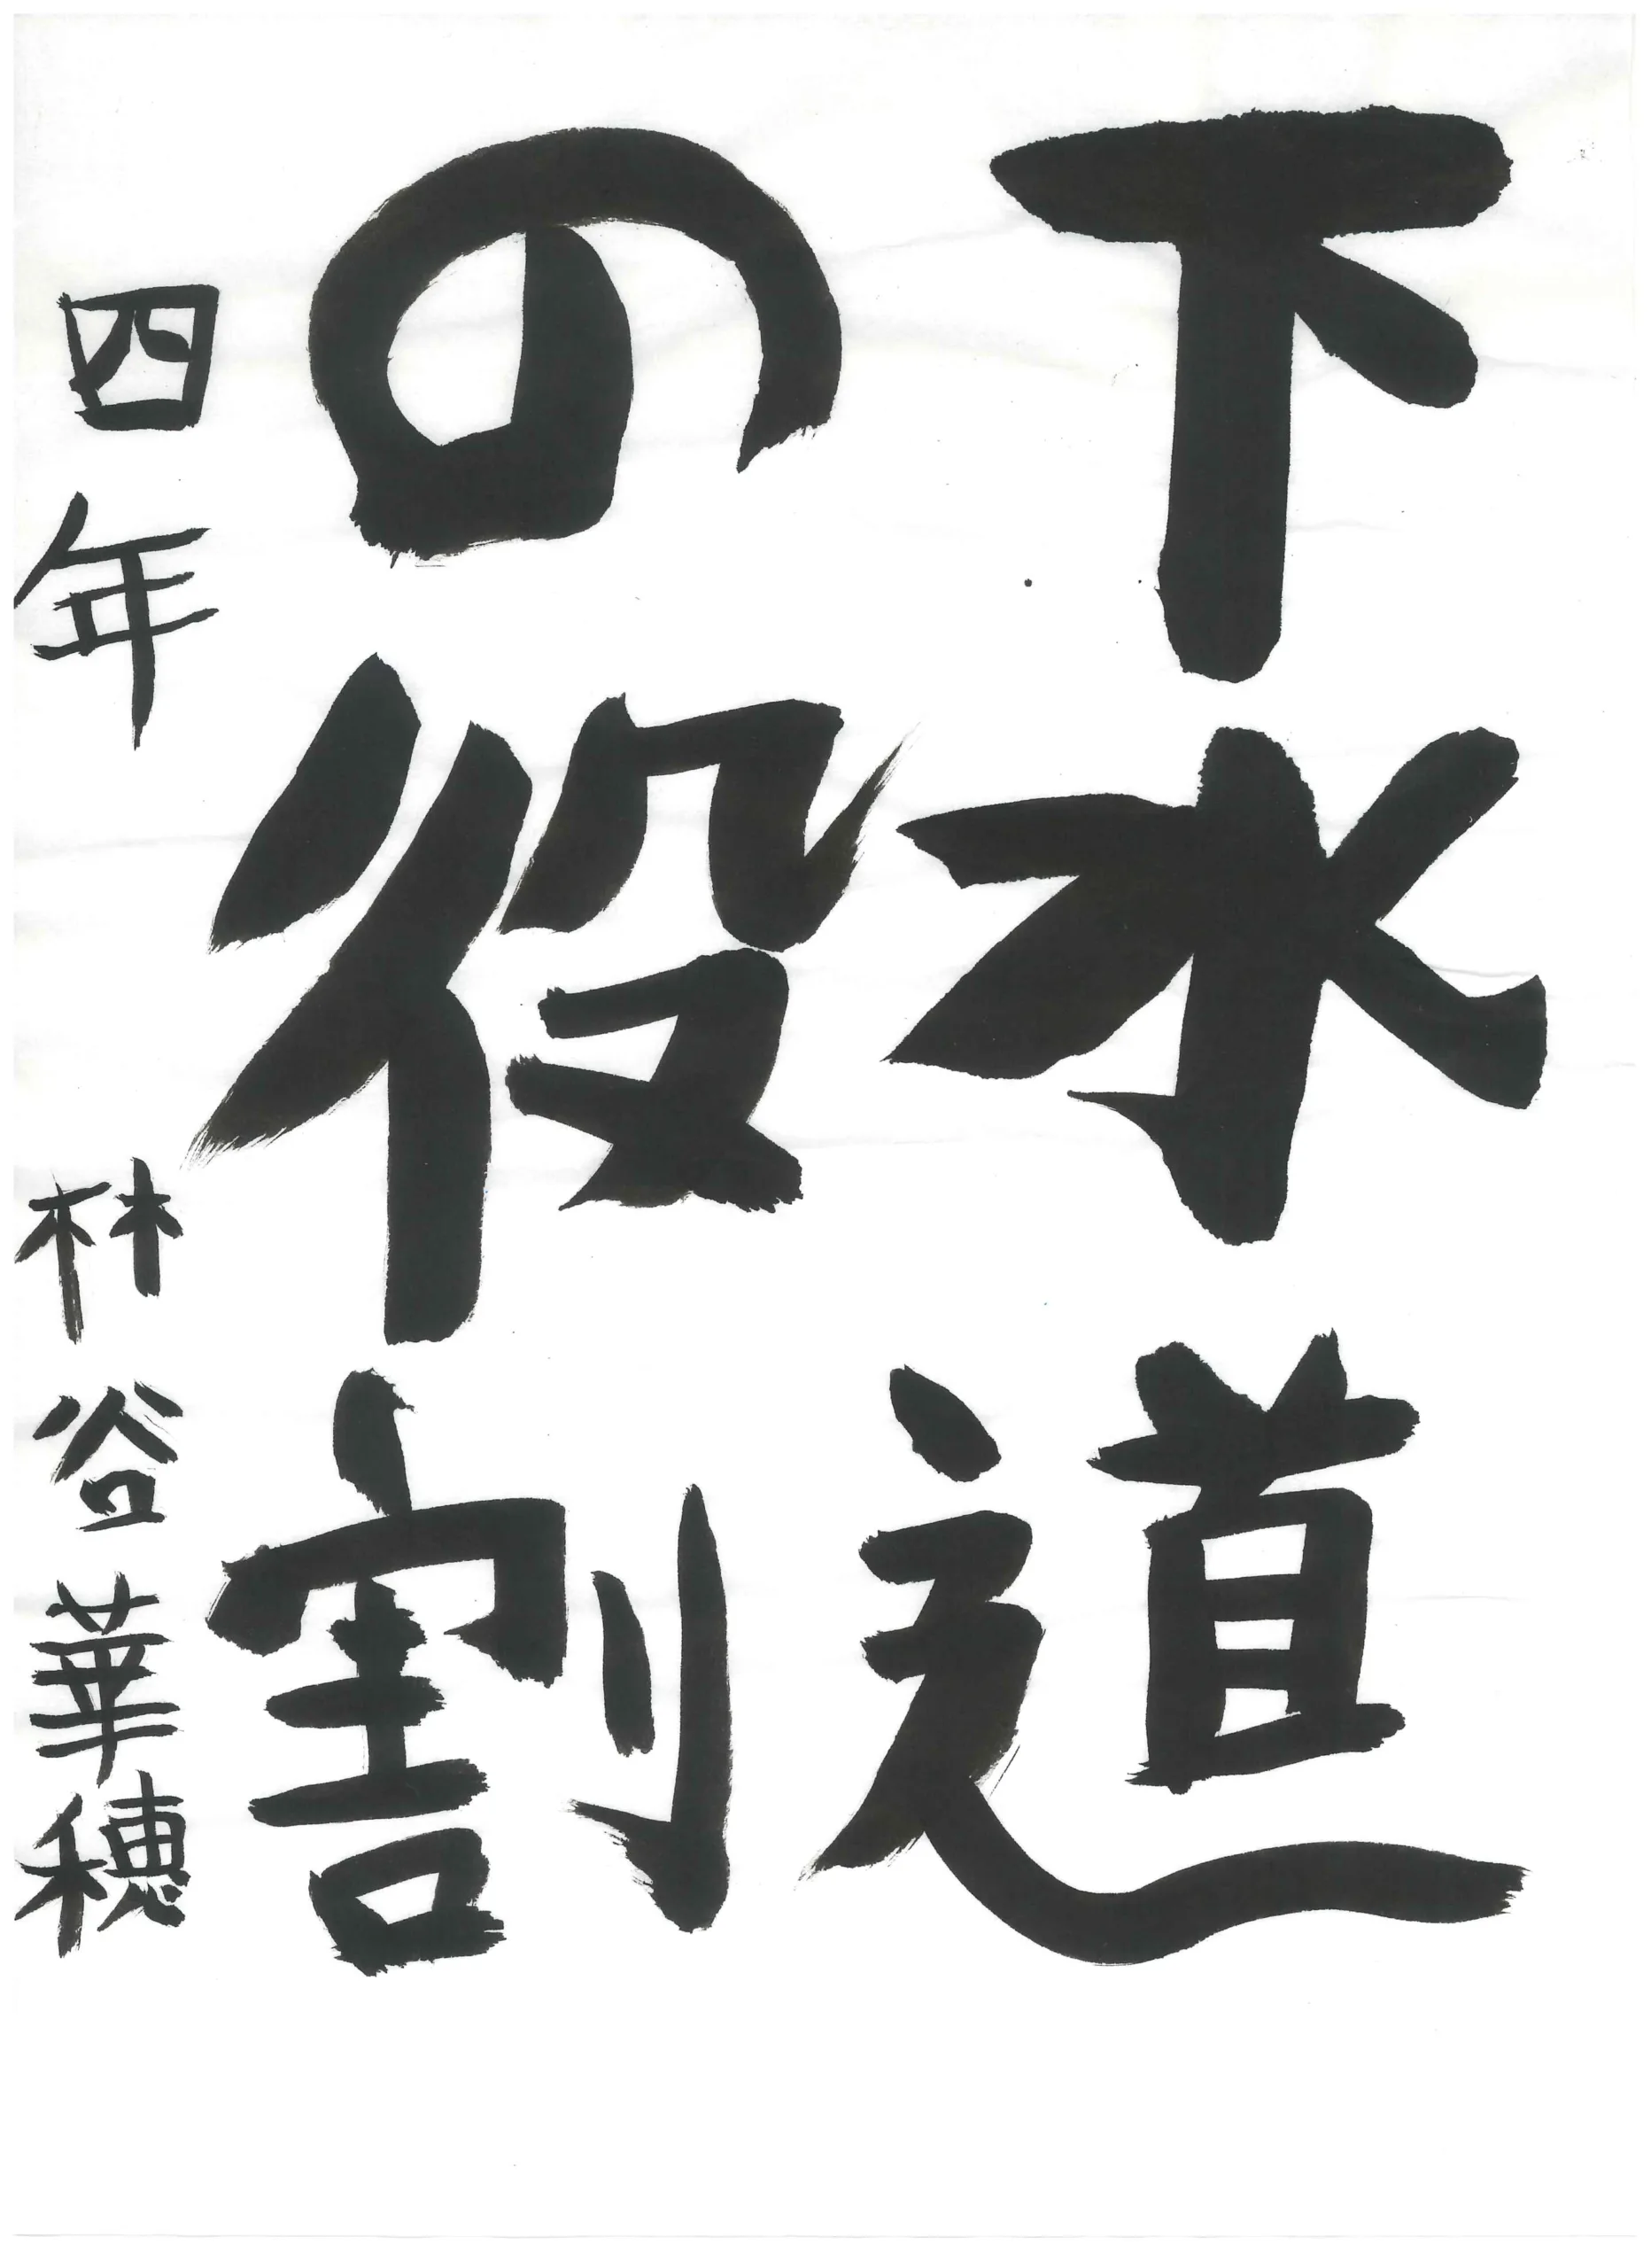 下水道
の役割
四年 林谷華穂